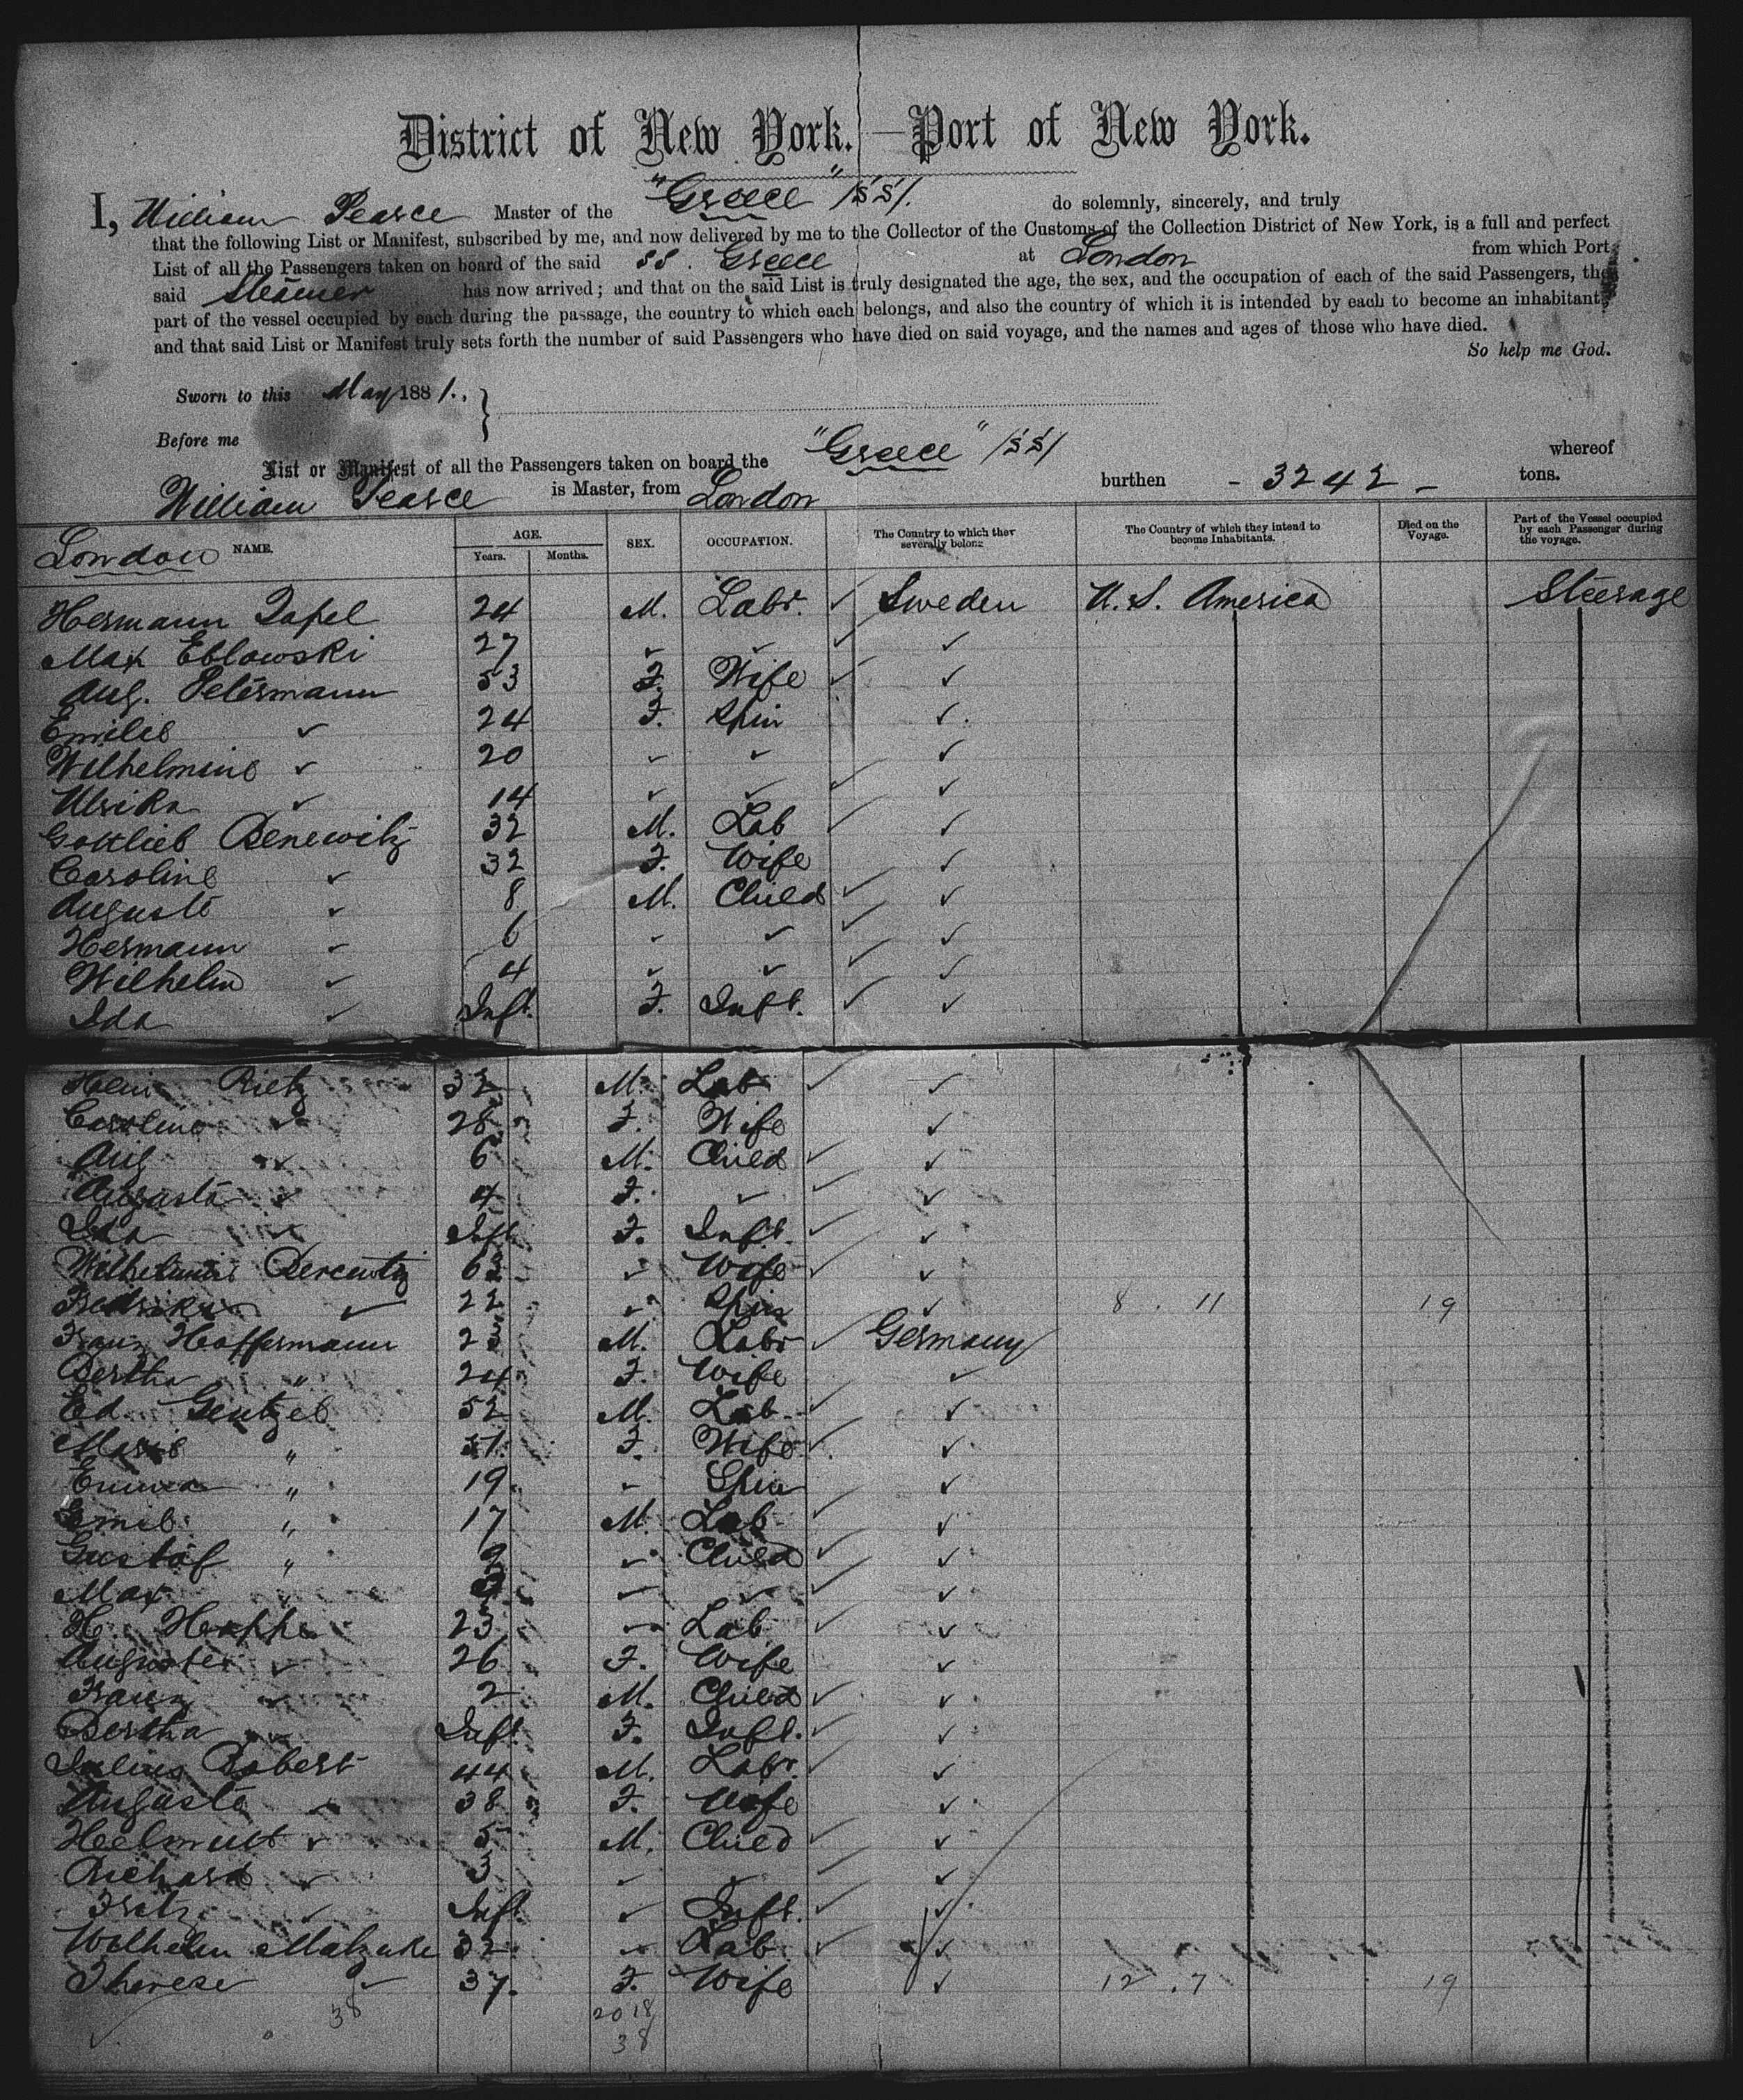 District of New York.—Port of New York.
I, William Pearce Master of the "Greece" /SS/. do solemnly, sincerely, and truly
that the following List or Manifest, subscribed by me, and now delivered by me to the Collector of the Customs of the Collection District of New York, is a full and perfect
List of all the Passengers taken on board of the said SS. Greece at London from which Port
said Steamer has now arrived; and that on the said List is truly designated the age, the sex, and the occupation of each of the said Passengers, the
part of the vessel occupied by each during the passage, the country to which each belongs, and also the country of which it is intended by each to become an inhabitant;
and that said List or Manifest truly sets forth the number of said Passengers who have died on said voyage, and the names and ages of those who have died.
So help me God.
Sworn to this May 1881.
Before me
List or Manifest of all the Passengers taken on board the "Greece" /SS/ whereof
William Pearce is Master, from London burthen - 3242 - tons.
London NAME. AGE. Years. Months. SEX. OCCUPATION. The Country to which they severally belong The Country of which they intend to become Inhabitants. Died on the Voyage. Part of the Vessel occupied by each Passenger during the voyage.
Hermann 24 M. Labr. ✓ Sweden U.S. America Steerage
Max Eblowski 27 ✓ ✓ ✓ ✓
Aug. Petermann 53 F. Wife ✓ ✓
Emilie ✓ 24 F. Spin ✓
Wilhelmine ✓ 20 ✓ ✓ ✓
Ulrika ✓ 14 ✓ ✓ ✓ ✓
Gottlieb Benewitz 32 M. Lab ✓ ✓
Caroline ✓ 32 F. Wife ✓
Auguste ✓ 8 M. Child ✓ ✓
Hermann ✓ 6 ✓ ✓ ✓ ✓
Wilhelm ✓ 4 ✓ ✓ ✓ ✓
Ida ✓ Inft. F. Inft. ✓ ✓
Rietz 32 M. Lab ✓ ✓
Caroline ✓ 28 F. Wife ✓
Aug ✓ 6 M. Child ✓ ✓
Augusta ✓ 4 F. ✓ ✓ ✓
Ida ✓ Inft F. Inft. ✓ ✓
Wilhelmine 63 ✓ Wife ✓ ✓
Fredrika ✓ 22 ✓ Spin ✓ 8 . 11 19
Franz Hoffermann 23 M. Labr ✓ Germany
Bertha " 24 F. Wife ✓
Ed. Gentzel 52 M. Lab ✓ ✓
Marie " F. Wife ✓ ✓
Emma " 19 ✓ Spin ✓
Emil " 17 M. Lab ✓ ✓
Gustaf " 9 ✓ Child ✓ ✓
Max ✓ ✓ ✓ ✓
H. 23 ✓ Lab ✓ ✓
Auguste ✓ 26 F. Wife ✓
Franz ✓ 2 M. Child ✓ ✓
Bertha ✓ Inft. F. Inft. ✓ ✓
Julius Robert 44 M. Labr. ✓ ✓
Auguste ✓ 38 F. Wife ✓
Helmuth ✓ 5 M. Child ✓ ✓
Richard ✓ 3 ✓ ✓ ✓ ✓
Fritz ✓ Inft ✓ Inft. ✓ ✓
Wilhelm 32 ✓ Lab ✓ ✓
Therese ✓ 37. F. Wife ✓ 12 . 7 19
38 20 18
38